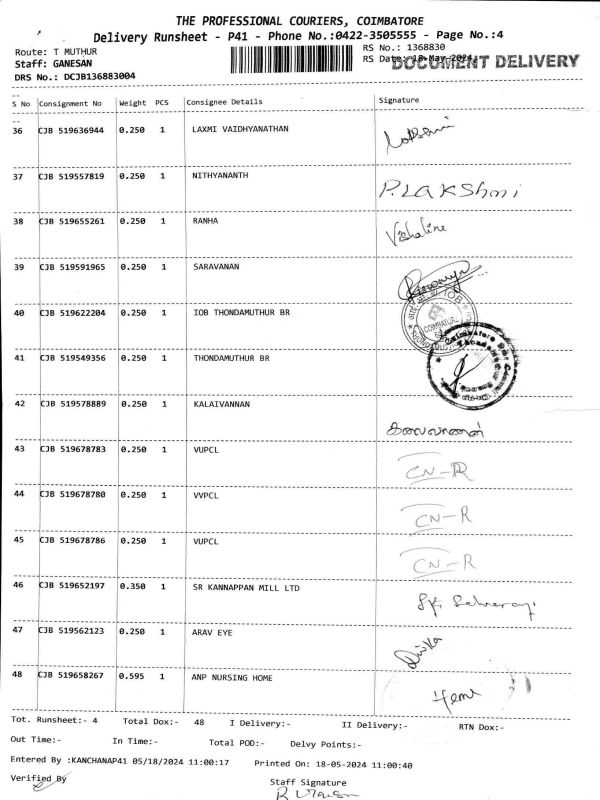 THE PROFESSIONAL COURIERS, COIMBATORE
Delivery Runsheet - P41 - Phone No.:0422-3505555 - Page No.:4
Route: T MUTHUR
RS No.: 1368830
Staff: GANESAN
RS Date: 18-May-2024
DOCUMENT DELIVERY
DRS No.: DCJB136883004
S No Consignment No Weight PCS Consignee Details Signature
36 CJB 519636944 0.250 1 LAXMI VAIDHYANATHAN
37 CJB 519557819 0.250 1 NITHYANANTH P.LAKShmi
38 CJB 519655261 0.250 1 RANHA Vishaline
39 CJB 519591965 0.250 1 SARAVANAN
40 CJB 519622204 0.250 1 IOB THONDAMUTHUR BR
IOB
COIMBATORE
41 CJB 519549356 0.250 1 THONDAMUTHUR BR
42 CJB 519578889 0.250 1 KALAIVANNAN கலைவாணன்
43 CJB 519678783 0.250 1 VUPCL CN-R
44 CJB 519678780 0.250 1 VVPCL CN-R
45 CJB 519678786 0.250 1 VUPCL CN-R
46 CJB 519652197 0.350 1 SR KANNAPPAN MILL LTD
47 CJB 519562123 0.250 1 ARAV EYE
48 CJB 519658267 0.595 1 ANP NURSING HOME Hema
Tot. Runsheet:- 4 Total Dox:- 48 I Delivery:- II Delivery:- RTN Dox:-
Out Time:- In Time:- Total POD:- Delvy Points:-
Entered By :KANCHANAP41 05/18/2024 11:00:17 Printed On: 18-05-2024 11:00:40
Verified By
Staff Signature